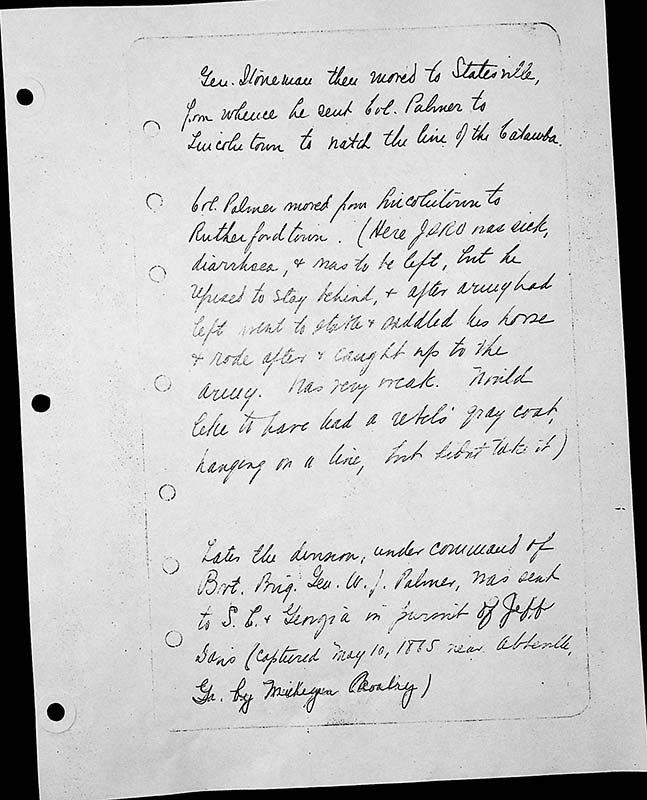 Gen. Stoneman then moved to Statesville,
from whence he sent Col. Palmer to
Lincolntown to watch the line of the Catawba.
Col. Palmer moved from Lincolntown to
Rutherfordtown. (Here was sick,
diarrhsea, & was to be left, but he
refused to stay behind, & after army had
left went to stable & saddled his horse
& rode after & caught up to the
army. Was very weak. Would
like to have had a rebel's gray coat,
hanging on a line, but didn't take it)
Later the division, under command of
Bvt. Brig. Gen. W. J. Palmer, was sent
to S. C. & Georgia in pursuit of Jeff
Davis (captured May 10, 1865 near Abbeville,
Ga. by Michigan Cavalry)